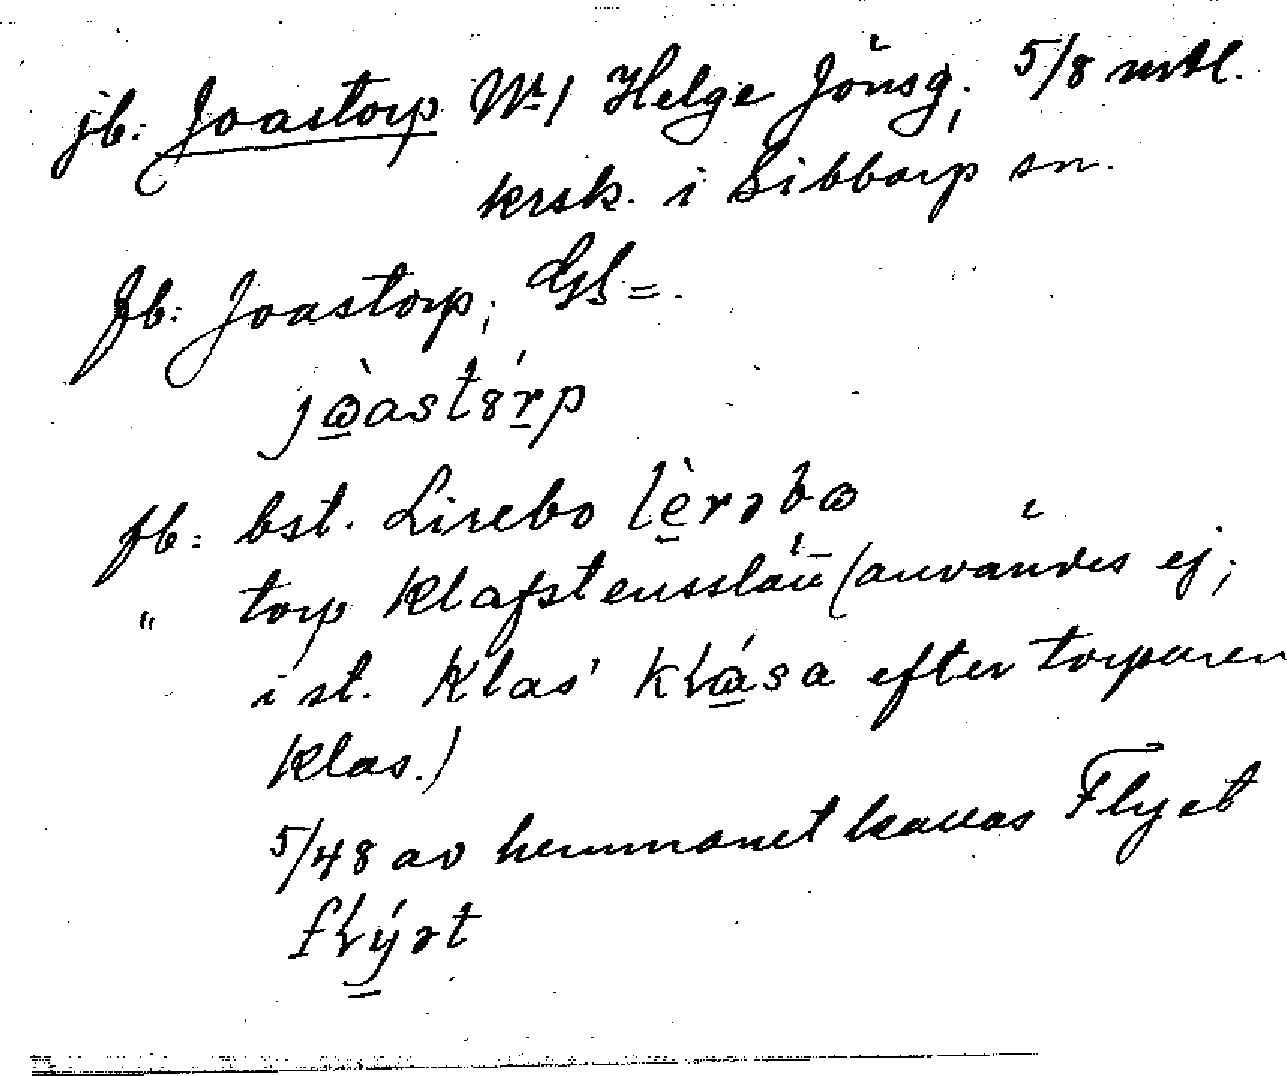 jb: Joastorp Nr 1 Helge Jönsg; 5/8 mtl.
krsk. i Sibbarp sn.
fb: Joastorp; GS =.
jò̲astɔ́r̲p
fb: bst. Lirebo lè̲rəbo
" torp Klafstensslätt (användes ej;
i st. Klas' kɬá̲sa efter torparen
Klas.)
5/48 av hemmanet kallas Flyet
fɬý̲ət